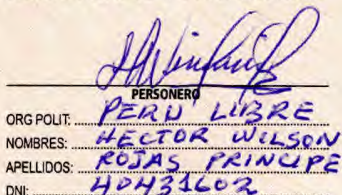 PERSONERO
ORG POLIT: PERU LIBRE
NOMBRES: HECTOR WILSON
APELLIDOS: ROJAS PRINCIPE
DNI: 40431602